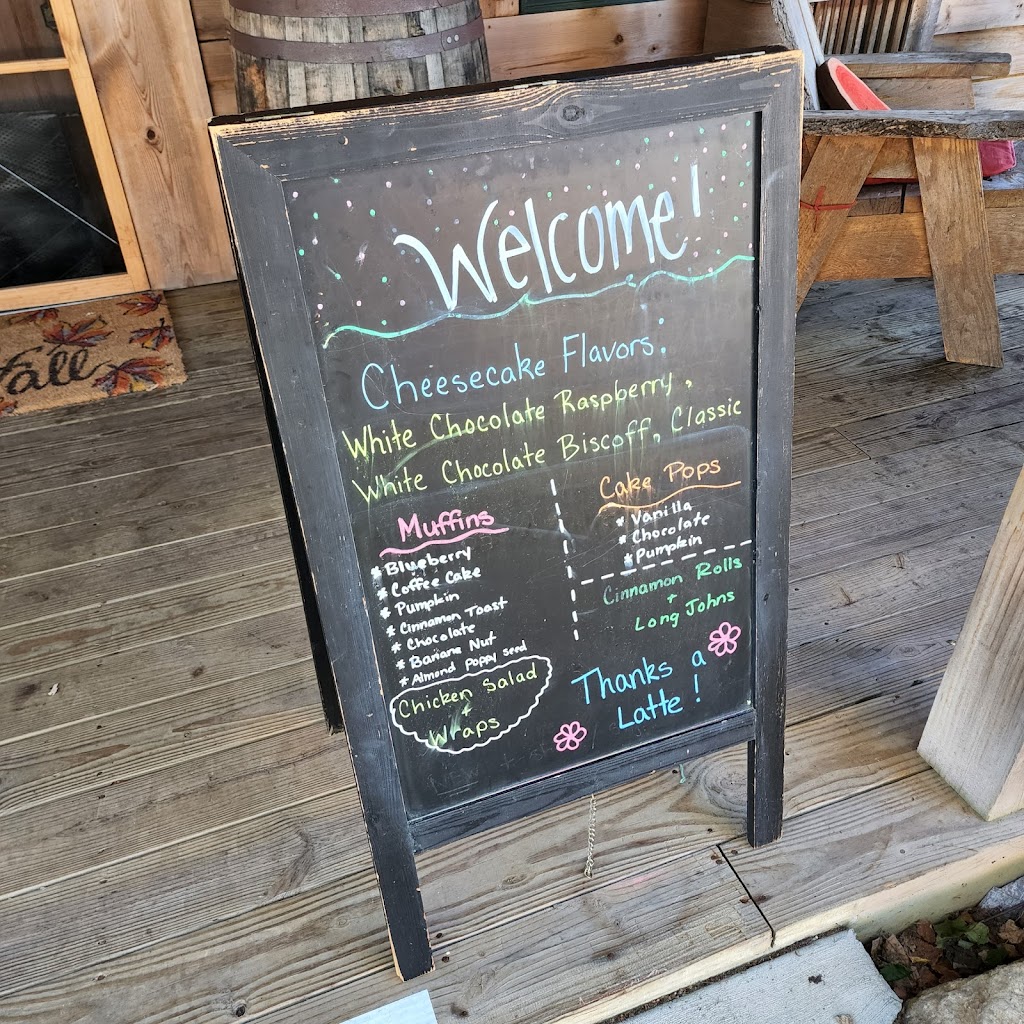 Fall
Welcome!
Cheesecake Flavors:
White Chocolate Raspberry,
White Chocolate Biscoff, Classic
Muffins
* Blueberry
* Coffee Cake
* Pumpkin
* Cinnamon Toast
* Chocolate
* Banana Nut
* Almond Poppy seed
Chicken Salad
+
Wraps
Cake Pops
* Vanilla
* Chocolate
* Pumpkin
Cinnamon Rolls
+
Long Johns
Thanks a
Latte!